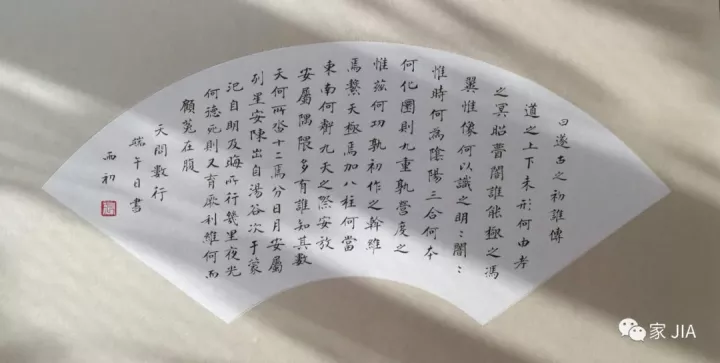 曰遂古之初誰傳
道之上下未形何由考
之冥昭瞢闇誰能極之馮
翼惟像何以識之明:闇:
惟時何為陰陽三合何本
何化圜則九重孰營度之
惟茲何功孰初作之斡維
焉繫天極焉加八柱何當
東南何虧九天之際安放
安屬隅隈多有誰知其數
天何所沓十二焉分日月安屬
列星安陳出自湯谷次于蒙
汜自明及晦所行幾里夜光
何德死則又育厥利維何而
顧菟在腹
天問數行
端午日書
初
家 JIA